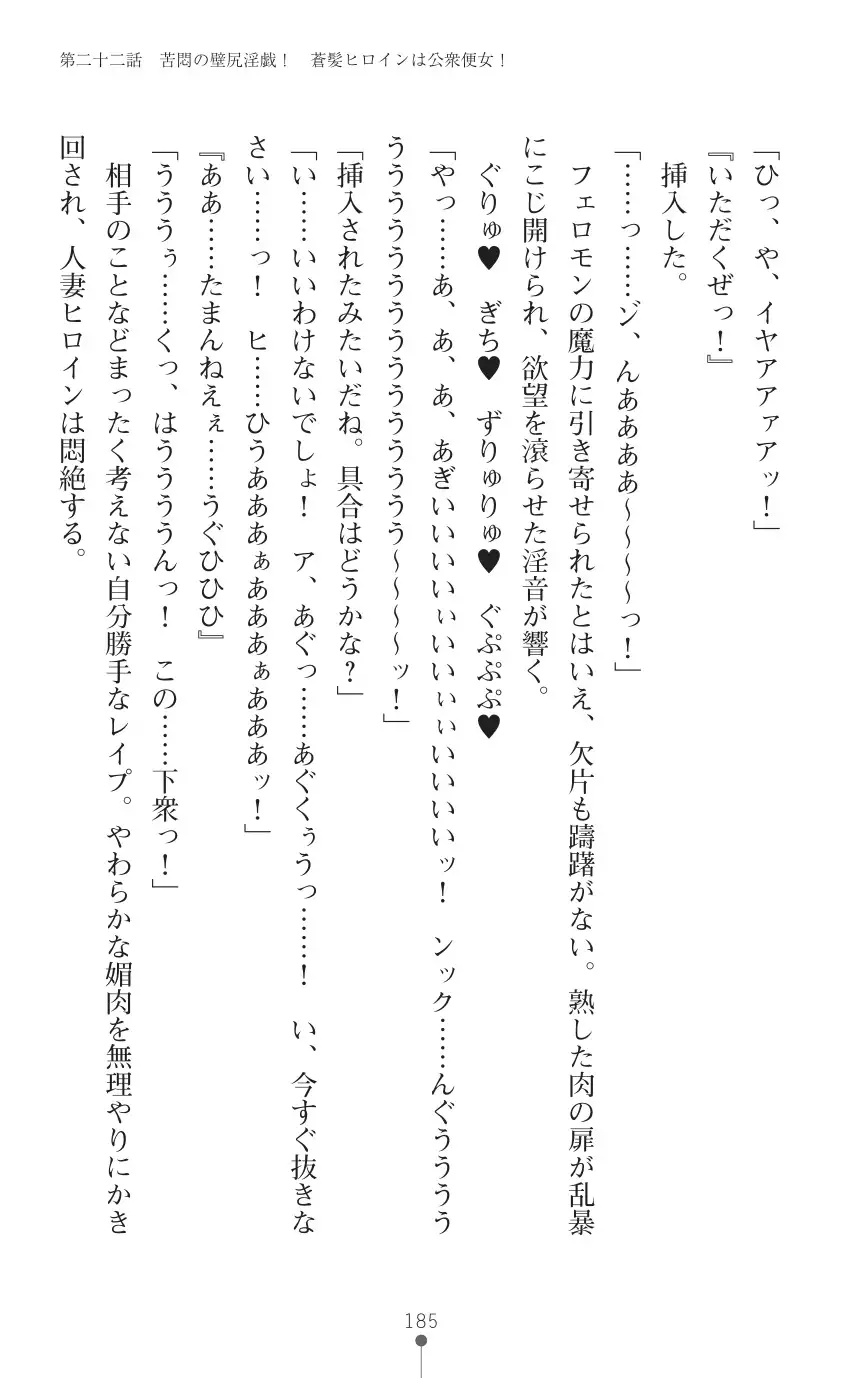 第二十二話　苦悶の壁尻淫戯！　蒼髪ヒロインは公衆便女！
「ひっ、や、イヤアアァアッ！」
『いただくぜっ！』
　挿入した。
「……っ……ゾ、んああああ～～～～っ！」
　フェロモンの魔力に引き寄せられたとはいえ、欠片も躊躇がない。熟した肉の扉が乱暴
にこじ開けられ、欲望を滾らせた淫音が響く。
　ぐりゅ♥　ぎち♥　ずりゅりゅ♥　ぐぷぷぷ♥
「やっ……あ、あ、あ、あぎいいいいぃいいぃぃいいいいッ！　ンック……んぐうううう
うううううううううううううう～～～～ッ！」
「挿入されたみたいだね。具合はどうかな？」
「い……いいわけないでしょ！　ア、あぐっ……あぐくぅうっ……！　い、今すぐ抜きな
さい……っ！　ヒ……ひうあああぁああああぁあああッ！」
『ああ……たまんねえぇ……うぐひひひ』
「うううぅ……くっ、はううううんっ！　この……下衆っ！」
　相手のことなどまったく考えない自分勝手なレイプ。やわらかな媚肉を無理やりにかき
回され、人妻ヒロインは悶絶する。
185